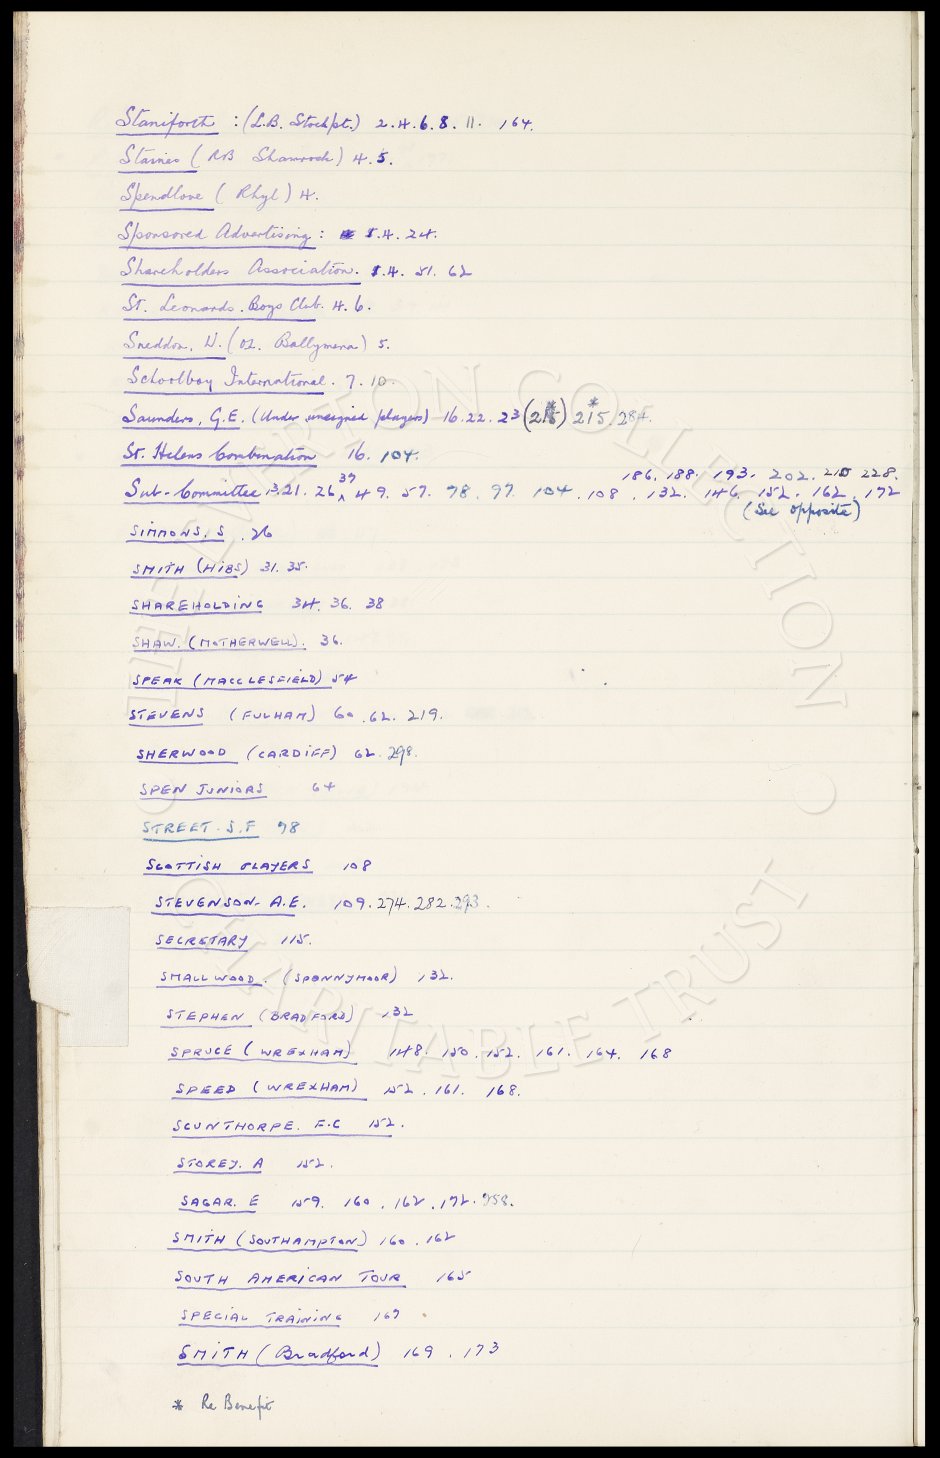 Staniforth : (L.B. Stockpt.) 2. 4. 6. 8. 11. 164.
Staines (RB Shamrock) 4. 5.
Spendlove (Rhyl) 4.
Sponsored Advertising : 1. 4. 24.
Shareholders Association. 1. 4. 51. 62
St. Leonards. Boys Club. 4. 6.
Sneddon. W. (OL. Ballymena) 5.
Schoolboy International. 7. 10.
Saunders, G.E. (Under unsigned players) 16. 22. 23 (215*) 215*. 284.
St. Helens Combination 16. 104.
186. 188. 193. 202. 215 228.
Sub-Committee 13. 21. 26 39 49. 57. 78. 97. 104. 108. 132. 146. 152. 162. 172
(See opposite)
SIMMONS. S. 26
SMITH (HIBS) 31. 35.
SHAREHOLDING 34. 36. 38
SHAW. (MOTHERWELL). 36.
SPEAK (MACCLESFIELD) 54
STEVENS (FULHAM) 60. 62. 219.
SHERWOOD (CARDIFF) 62. 298.
SPEN JUNIORS 64
STREET. S.F 78
SCOTTISH PLAYERS 108
STEVENSON. A.E. 109. 274. 282. 293.
SECRETARY 115.
SMALLWOOD. (SPENNYMOOR) 132.
STEPHEN (BRADFORD) 132
SPRUCE (WREXHAM) 148. 150. 152. 161. 164. 168
SPEED (WREXHAM) 152. 161. 168.
SCUNTHORPE. F.C 152.
STOREY. A 152.
SAGAR. E 159. 160. 162. 172. 258.
SMITH (SOUTHAMPTON) 160. 162
SOUTH AMERICAN TOUR 165
SPECIAL TRAINING 167
SMITH (Bradford) 169. 173
* Re Benefit
THE EVERTON COLLECTION
CHARITABLE TRUST